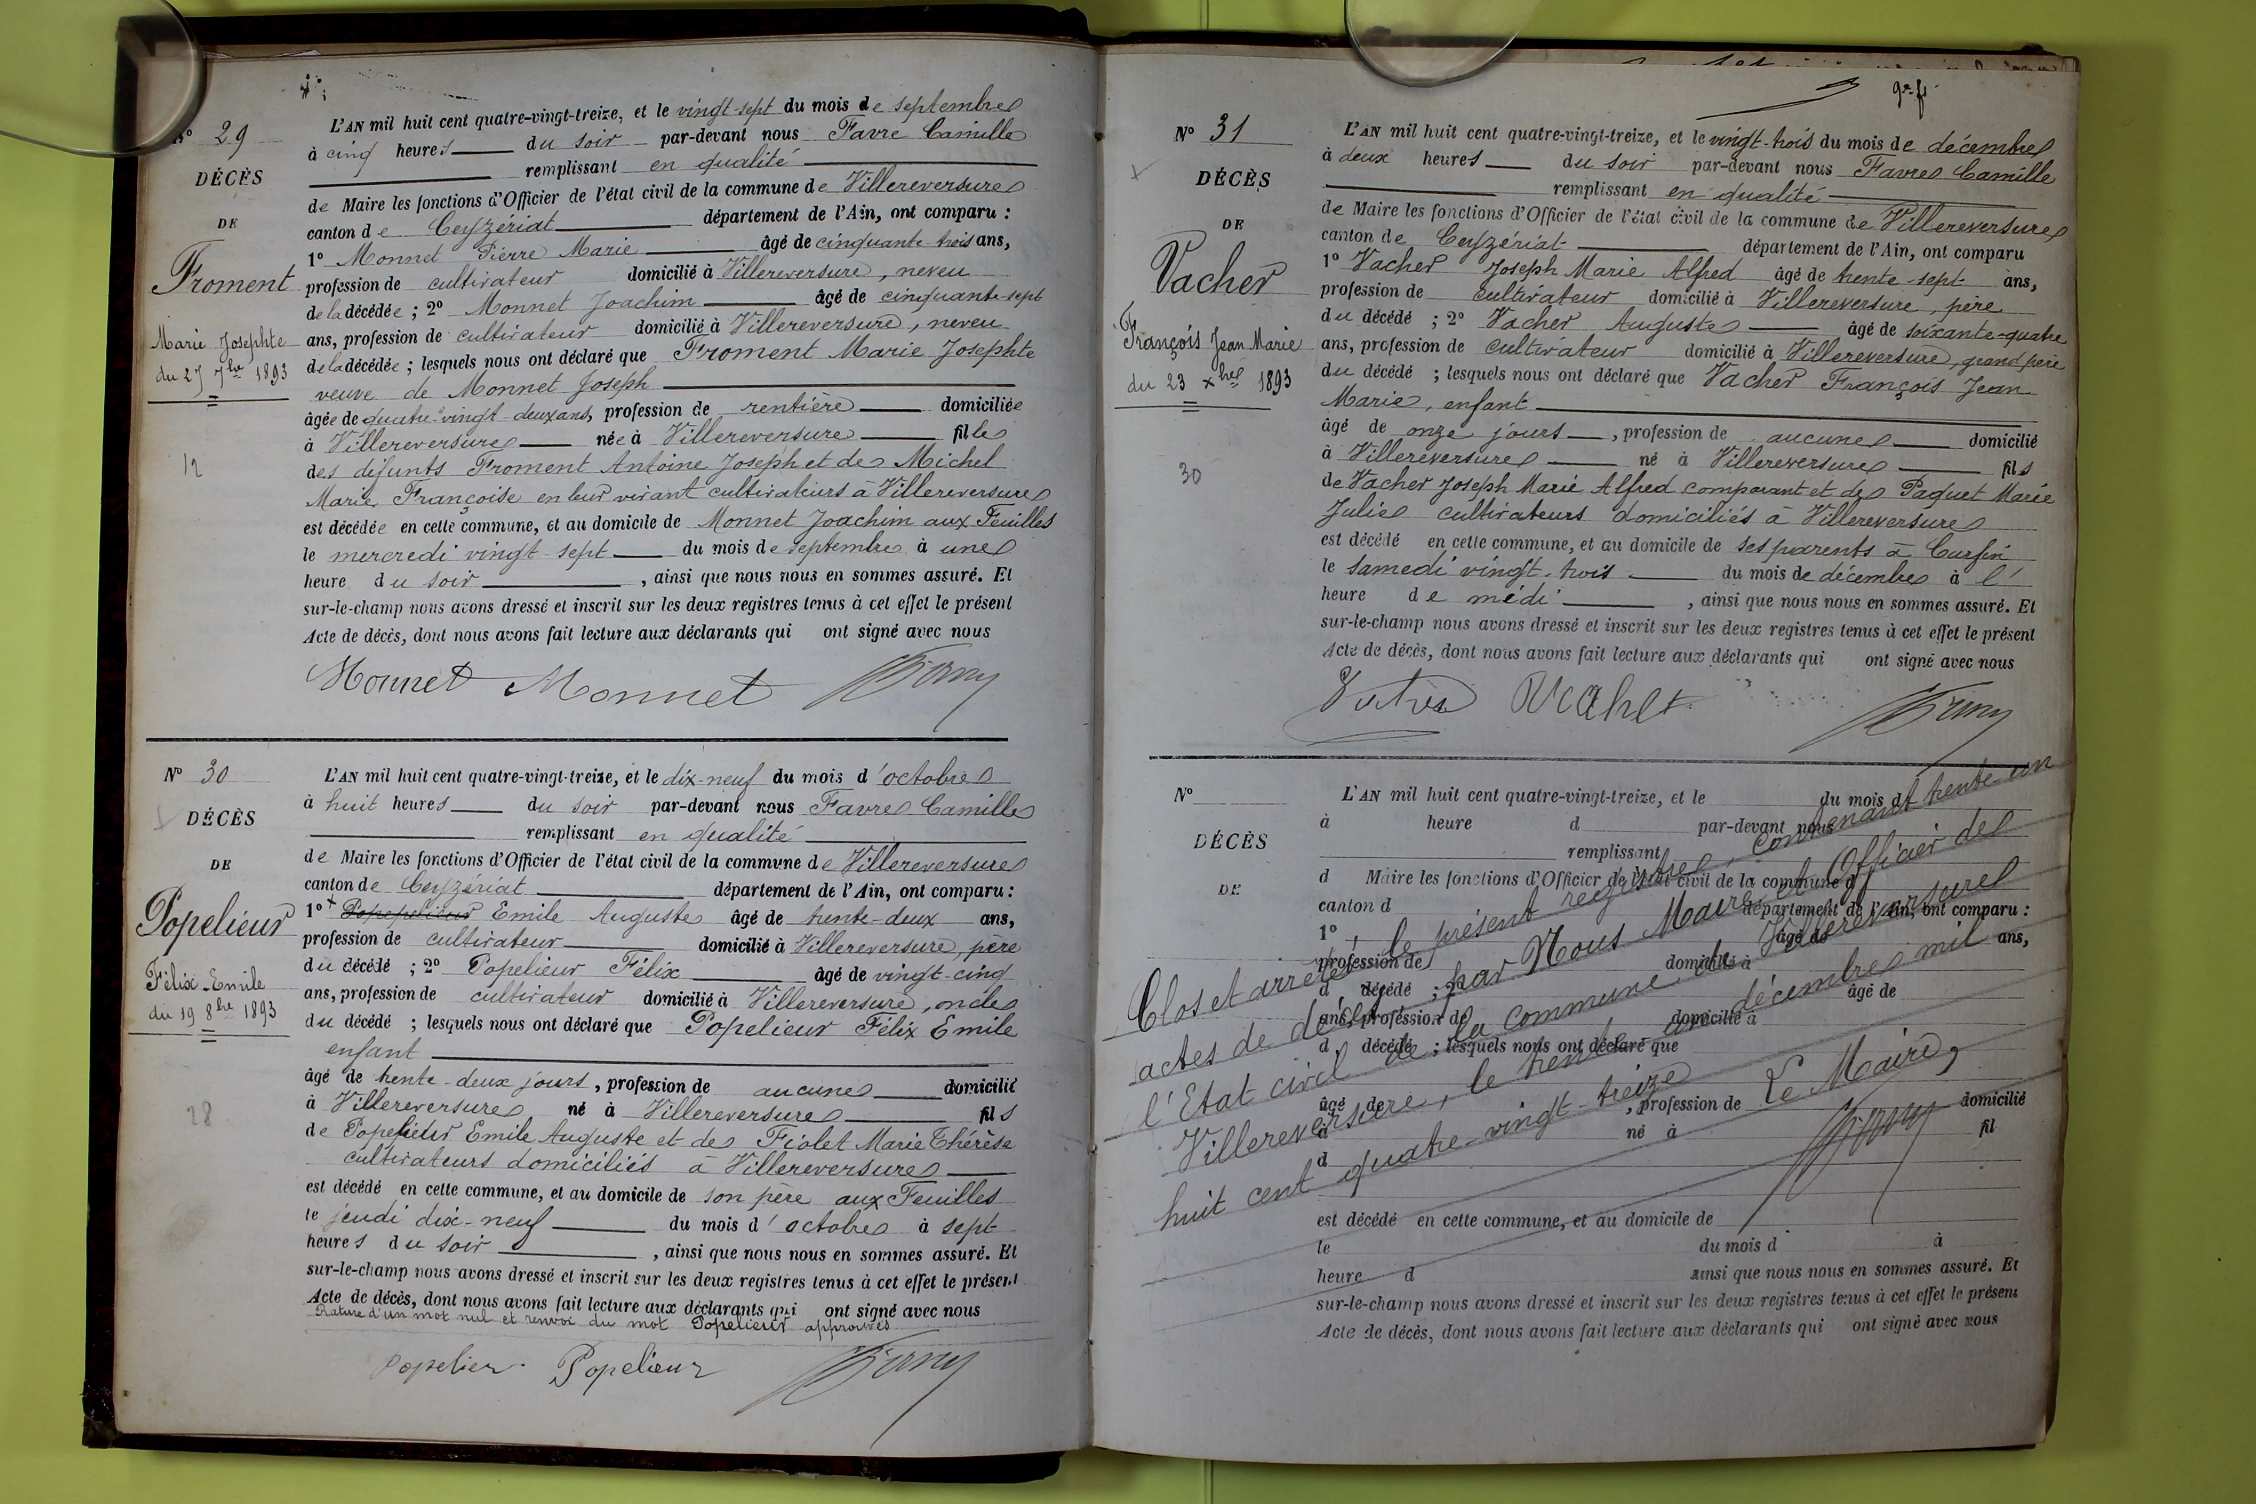 N° 29
DÉCÈS
DE
Froment
Marie Josephte
du 27 7bre 1893
12
L'AN mil huit cent quatre-vingt-treize, et le vingt-sept du mois de septembre
à cinq heures du soir par-devant nous Favre Camille
remplissant en qualité
de Maire les fonctions d'Officier de l'état civil de la commune de Villereversure
canton de Ceyzériat département de l'Ain, ont comparu :
1° Monnet Pierre Marie âgé de cinquante trois ans,
profession de cultivateur domicilié à Villereversure, neveu
de la décédée ; 2° Monnet Joachim âgé de cinquante-sept
ans, profession de cultivateur domicilié à Villereversure, neveu
de la décédée ; lesquels nous ont déclaré que Froment Marie Josephte
veuve de Monnet Joseph
âgée de quatre-vingt-deux ans, profession de rentière domiciliée
à Villereversure née à Villereversure fille
des défunts Froment Antoine Joseph et de Michel
Marie Françoise en leur vivant cultivateurs à Villereversure
est décédée en cette commune, et au domicile de Monnet Joachim aux Feuilles
le mercredi vingt-sept du mois de septembre à une
heure du soir , ainsi que nous nous en sommes assuré. Et
sur-le-champ nous avons dressé et inscrit sur les deux registres tenus à cet effet le présent
Acte de décès, dont nous avons fait lecture aux déclarants qui ont signé avec nous
Monnet Monnet
N° 30
DÉCÈS
DE
Popelieur
Félix-Emile
du 19 8bre 1893
28
L'AN mil huit cent quatre-vingt-treize, et le dix-neuf du mois d'octobre
à huit heures du soir par-devant nous Favre Camille
remplissant en qualité
de Maire les fonctions d'Officier de l'état civil de la commune de Villereversure
canton de Ceyzériat département de l'Ain, ont comparu :
1° Emile Auguste âgé de trente-deux ans,
profession de cultivateur domicilié à Villereversure, père
du décédé ; 2° Popelieur Félix âgé de vingt-cinq
ans, profession de cultivateur domicilié à Villereversure, oncle
du décédé ; lesquels nous ont déclaré que Popelieur Félix Emile
enfant
âgé de trente-deux jours, profession de aucune domicilié
à Villereversure né à Villereversure fils
de Popelieur Emile Auguste et de Fiolet Marie Thérèse
cultivateurs domiciliés à Villereversure
est décédé en cette commune, et au domicile de son père aux Feuilles
le jeudi dix-neuf du mois d'octobre à sept
heures du soir , ainsi que nous nous en sommes assuré. Et
sur-le-champ nous avons dressé et inscrit sur les deux registres tenus à cet effet le présent
Acte de décès, dont nous avons fait lecture aux déclarants qui ont signé avec nous
Rature d'un mot nul et renvoi du mot Popelieur approuvés
popelier Popelieur
N° 31
DÉCÈS
DE
Vacher
François Jean Marie
du 23 xbre 1893
30
L'AN mil huit cent quatre-vingt-treize, et le vingt-trois du mois de décembre
à deux heures du soir par-devant nous Favre Camille
remplissant en qualité
de Maire les fonctions d'Officier de l'état civil de la commune de Villereversure
canton de Ceyzériat département de l'Ain, ont comparu
1° Vacher Joseph Marie Alfred âgé de trente-sept ans,
profession de cultivateur domicilié à Villereversure, père
du décédé ; 2° Vacher Auguste âgé de soixante-quatre
ans, profession de cultivateur domicilié à Villereversure, grand père
du décédé ; lesquels nous ont déclaré que Vacher François Jean
Marie, enfant
âgé de onze jours , profession de aucune domicilié
à Villereversure né à Villereversure fils
de Vacher Joseph Marie Alfred comparant et de Paquet Marie
Julie cultivateurs domiciliés à Villereversure
est décédé en cette commune, et au domicile de ses parents à Curfin
le samedi vingt-trois du mois de décembre à l'
heure de médi , ainsi que nous nous en sommes assuré. Et
sur-le-champ nous avons dressé et inscrit sur les deux registres tenus à cet effet le présent
Acte de décès, dont nous avons fait lecture aux déclarants qui ont signé avec nous
N°
DÉCÈS
DE
L'AN mil huit cent quatre-vingt-treize, et le du mois d
à heure d par-devant nous
remplissant
d Maire les fonctions d'Officier de l'état civil de la commune d
canton d département de l'Ain, ont comparu :
1° âgé de ans,
profession de domicilié à
d décédé ; 2° âgé de
ans, profession de domicilié à
d décédé ; lesquels nous ont déclaré que
âgé de , profession de domicilié
à né à fil
d
est décédé en cette commune, et au domicile de
le du mois d à
heure d ainsi que nous nous en sommes assuré. Et
sur-le-champ nous avons dressé et inscrit sur les deux registres tenus à cet effet le présent
Acte de décès, dont nous avons fait lecture aux déclarants qui ont signé avec nous
Clos et arrêté le présent registre, contenant trente un
actes de décès, par Nous Maire et Officier de
l'Etat civil de la commune de Villereversure
Villereversure, le trente un décembre mil
huit cent quatre-vingt-treize
Le Maire,